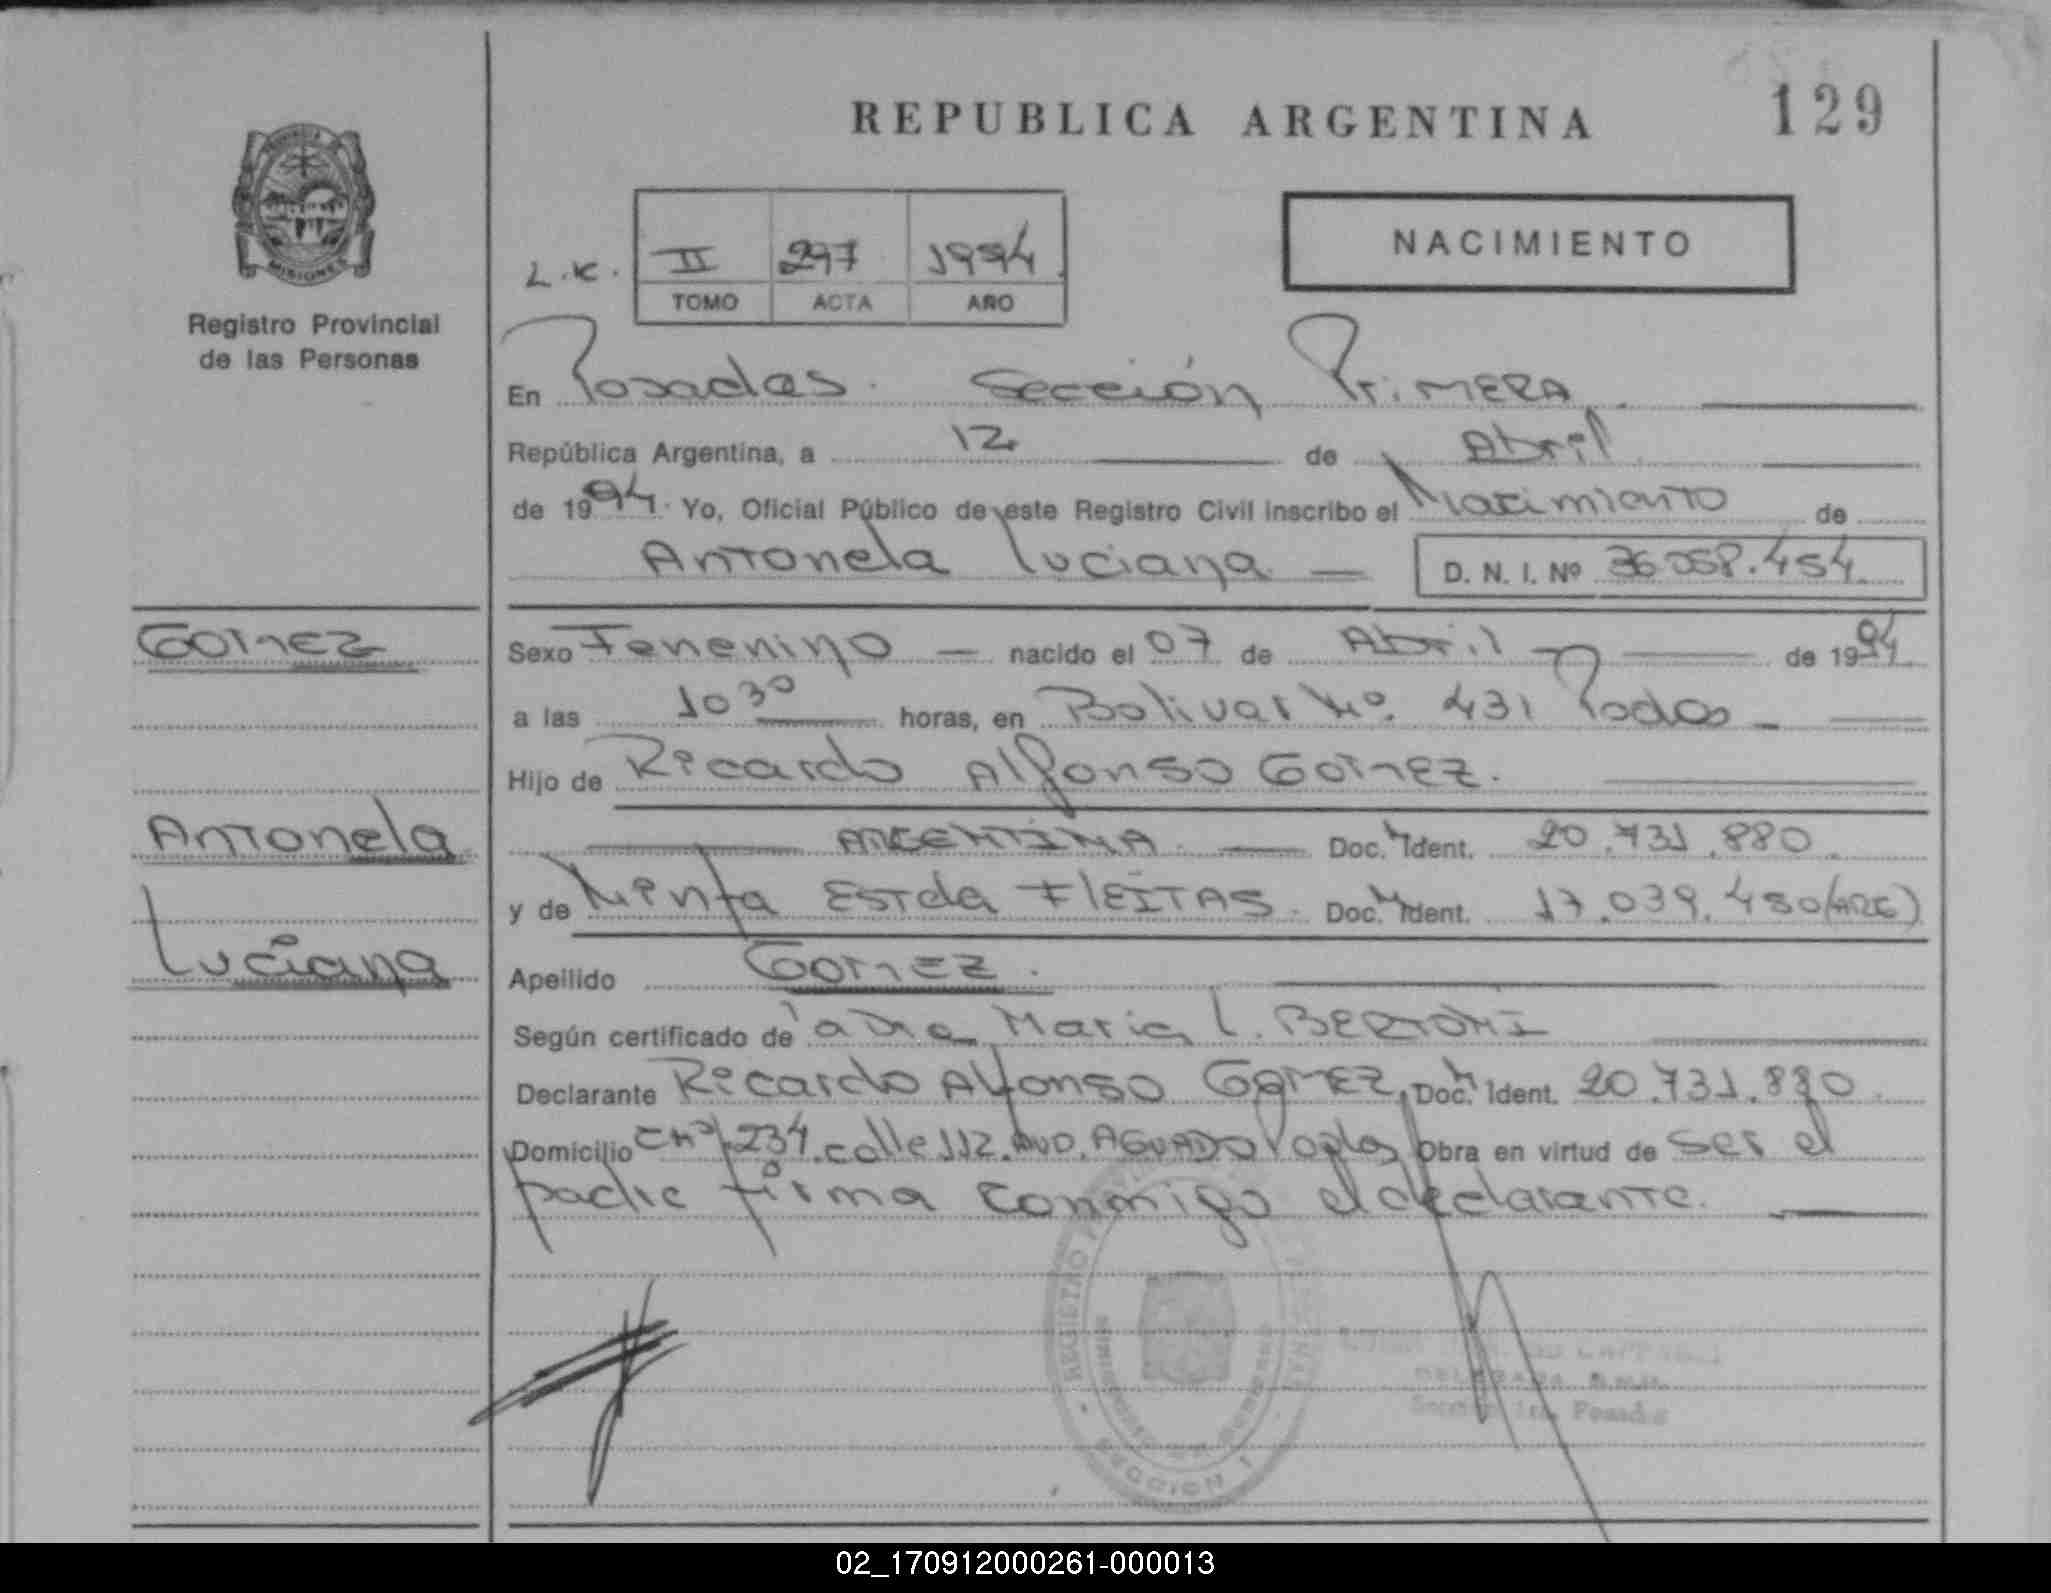 129
REPUBLICA ARGENTINA
PROVINCIA
MISIONES
Registro Provincial
de las Personas
NACIMIENTO
L.K. II 297 1994
TOMO ACTA AÑO
En Posadas. Sección PriMERA.
República Argentina, a 12 de Abril
de 1994. Yo, Oficial Público de este Registro Civil inscribo el Nacimiento de
Antonela Luciana D. N. I. Nº 36.058.454
GOMEZ
Antonela
Luciana
Sexo Femenino nacido el 07 de Abril de 1994
a las 10 30 horas, en Bolivar Nº. 431 Podas
Hijo de Ricardo Alfonso GOMEZ.
ARGENTINA Doc. Ident. 20.731.880.
y de Mirta EsTela FlEITAS. Doc. Ident. 17.039.480(ARG)
Apellido GOMEZ.
Según certificado de la Dra Maria L. BERTONI
Declarante Ricardo Alfonso GOMEZ, Doc. Ident. 20.731.880.
Domicilio 234. calle 112. AGUADO Podas Obra en virtud de ser el
padre firma conmigo el declarante.
REGISTRO
SECCION 1
Sección 1ra. Posadas
02_170912000261-000013